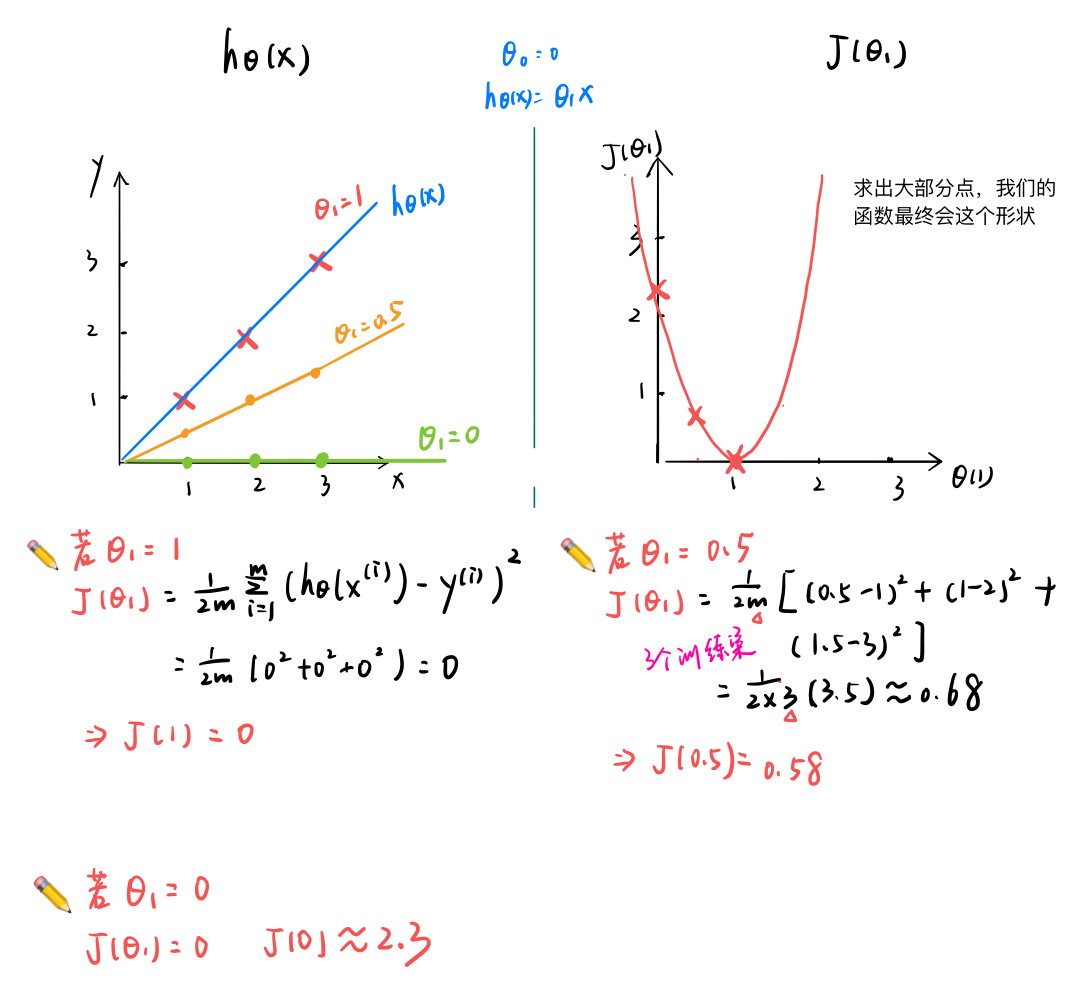 hθ(x)
θ₀=0
hθ(x)=θ₁x
J(θ₁)
y
θ₁=1
hθ(x)
3
θ₁=0.5
2
1
θ₁=0
1
2
3
x
J(θ₁)
求出大部分点，我们的
函数最终会这个形状
3
2
1
1
2
3
θ(1)
若 θ₁=1
J(θ₁) = 1/2m ∑ᵢ₌₁ᵐ (hθ(x⁽ⁱ⁾) - y⁽ⁱ⁾)²
= 1/2m (0²+0²+0²) = 0
⇒ J(1) = 0
若 θ₁ = 0.5
J(θ₁) = 1/2m [(0.5-1)² + (1-2)² +
3个训练集 (1.5-3)²]
= 1/2×3 (3.5) ≈ 0.68
⇒ J(0.5) = 0.58
若 θ₁ = 0
J(θ₁) = 0 J(0) ≈ 2.3